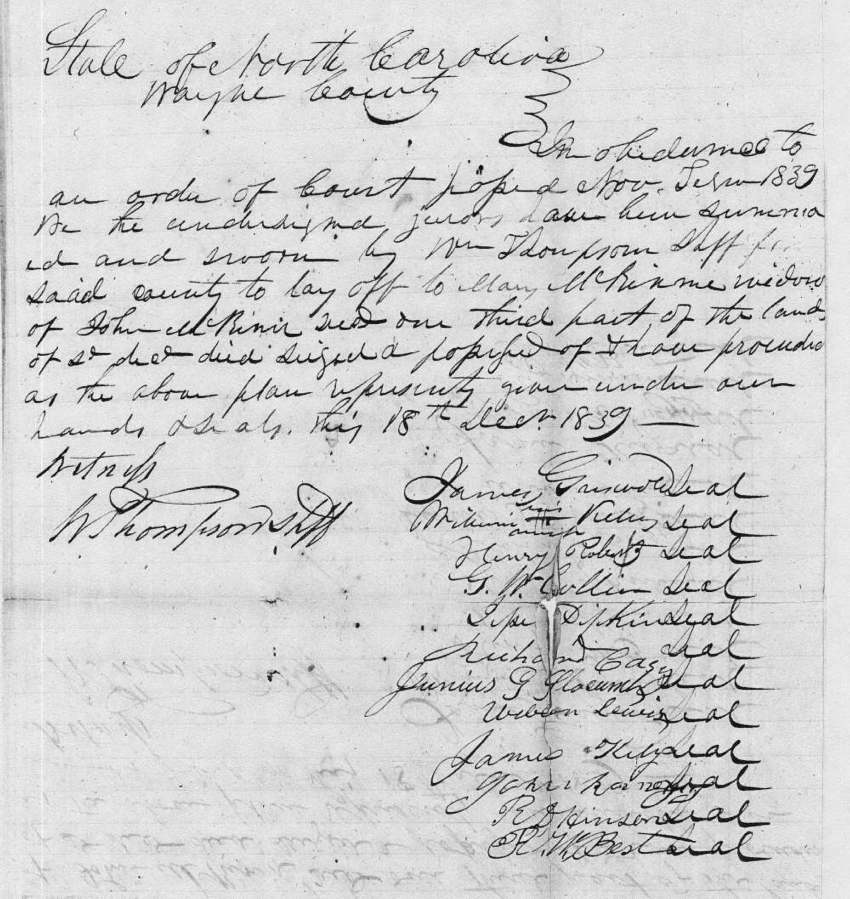 State of North Carolina
Wayne County
In obedience to
an order of Court passed Nov. Term 1839
We the undersigned jurors have been summon
ed and sworn by Wm Thompson Shff
said county to lay off to Mary McKinnie widow
of John McKinne decd one third part of the lands
of sd decd died seized & possessed of & have proceeded
as the above plan represents given under our
hands & seals. this 18th Decr 1839
Witness
W Thompson Shff
James Griswold Seal
William his mark Kelly Seal
Henry Roberts Seal
G. W. Collier Seal
Jesse Pipkin Seal
Richard Casey Seal
Junius G Slocumb Seal
Lewis Seal
James Kelly Seal
John Seal
R D Hinson Seal
R. W. Best Seal